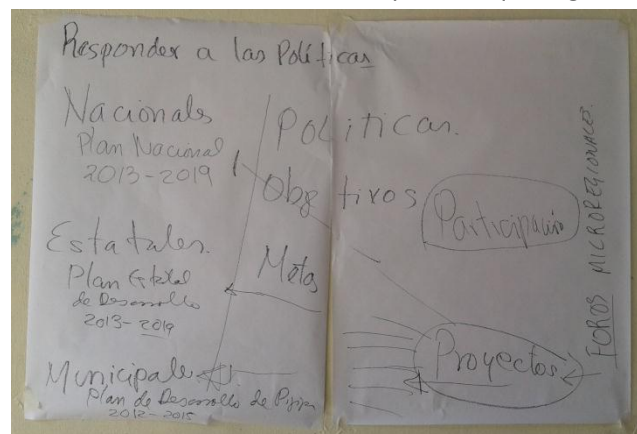 Responder a las Políticas
Nacionals
Plan Nacional
2013-2019
Estatales.
Plan Estatal
de Desarrollo
2013-2019
Municipales
Plan de Desarrollo de Pijiji
2012-2015
Políticas.
Objetivos
Metas
Participación
Proyectos
FOROS MICROREGIONALES.